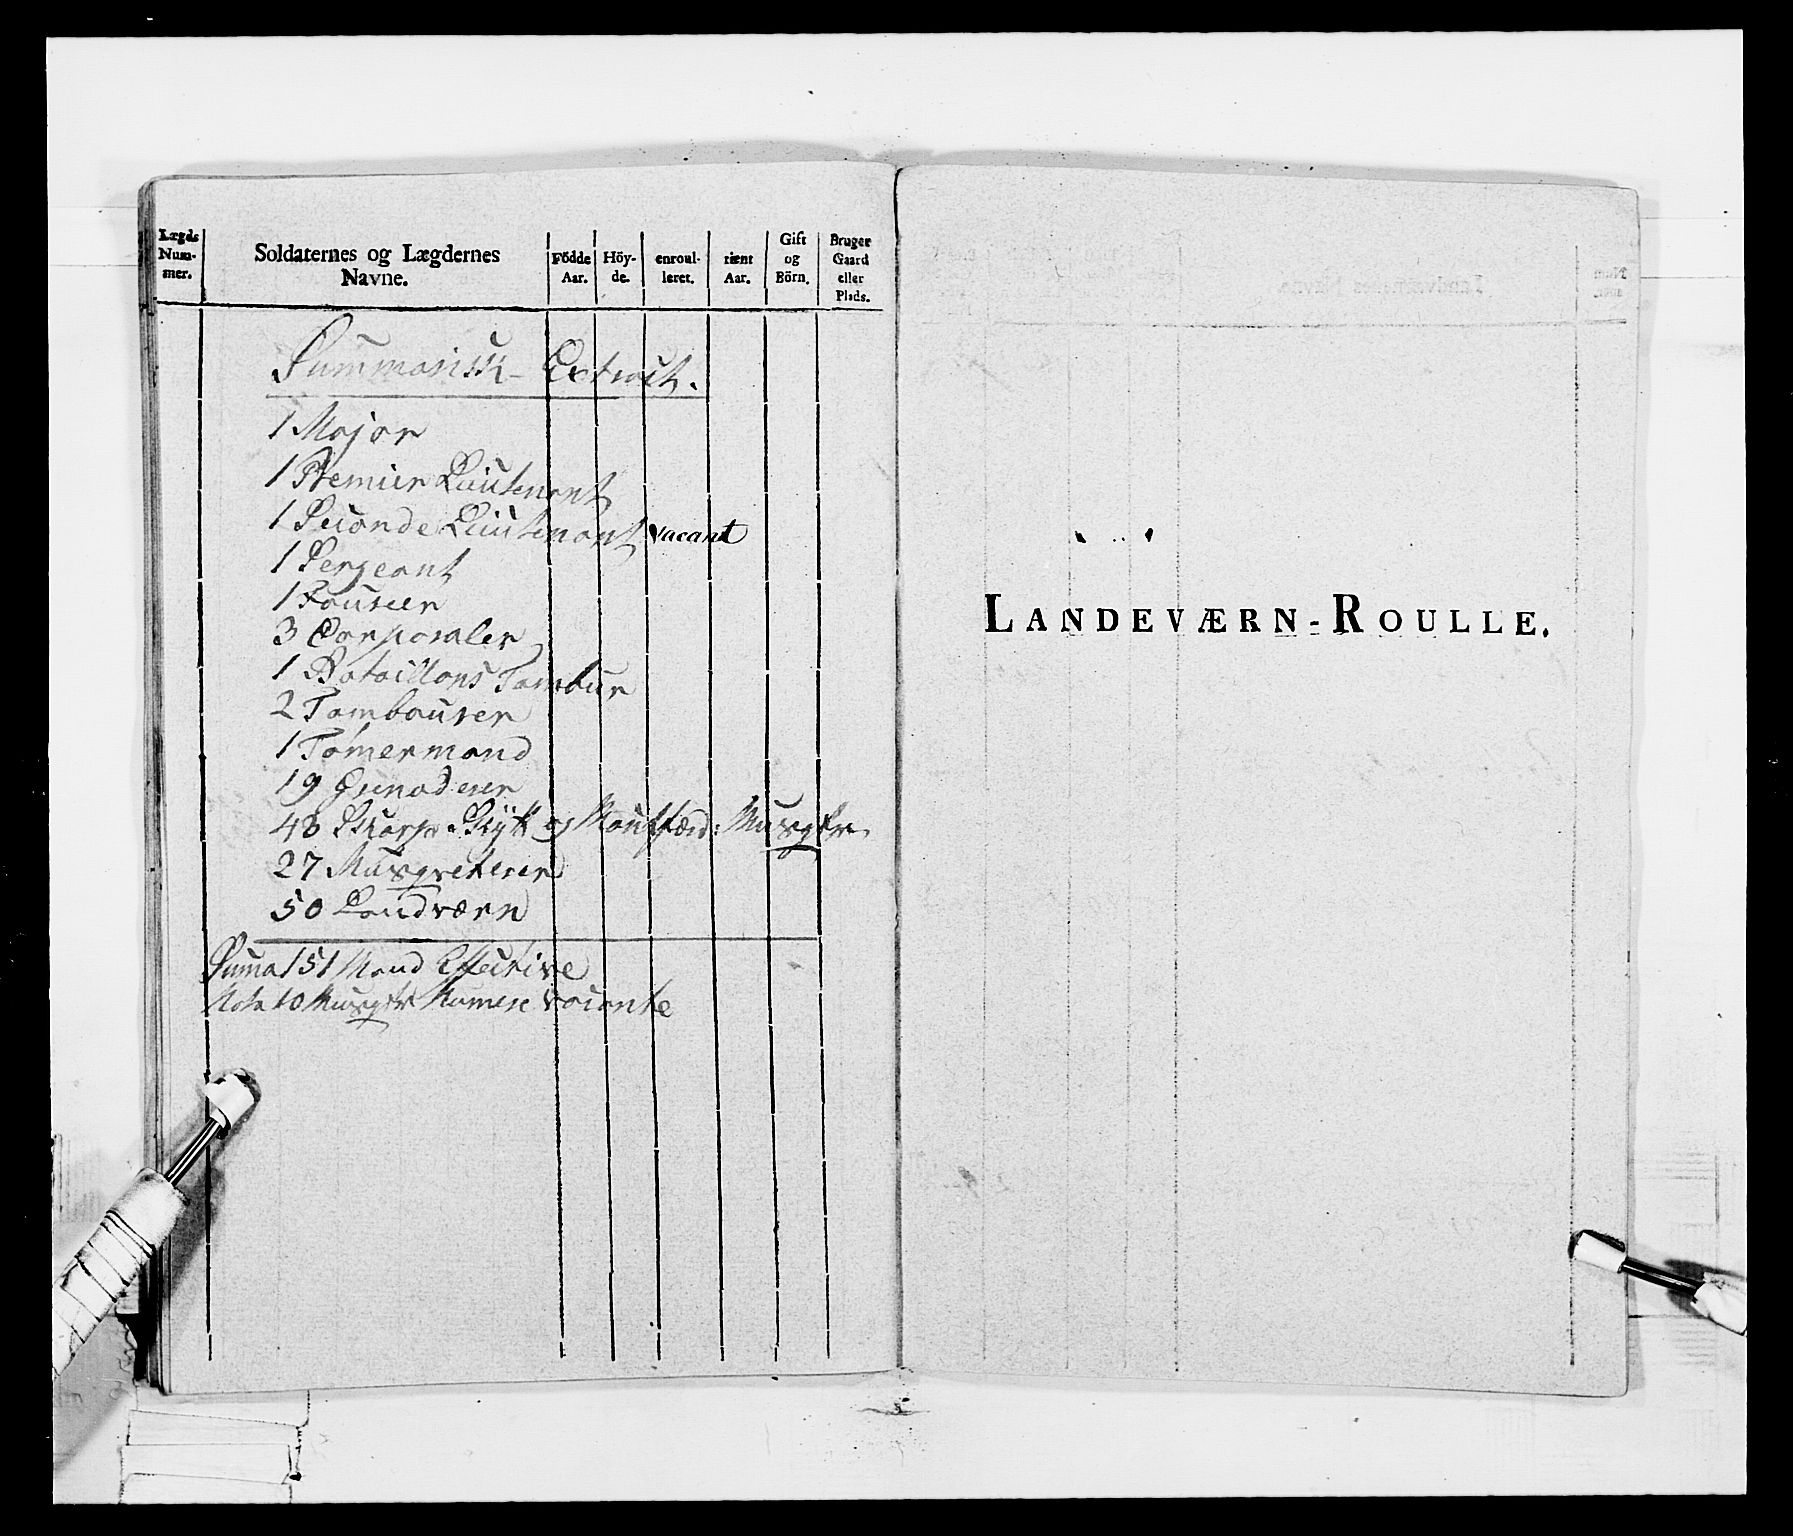 Lægds Nummer.
Soldaternes og Lægdernes Navne.
Födde Aar.
Höyde.
enroulleret.
tient Aar.
Gift og Börn.
Bruger Gaard eller Plads.
Summarisk Extract.
1 Major
1 Premier Lieutenant
1 Seconde Lieutenant vacant
1 Sergeant
1 Fourier
3 Corporaler
1 Bataillons Tambur
2 Tambourer
1 Tømermand
19 Grenaderer
48 Skarp Skytt og
27 Musqveterer
50 Landværn
Suma 151 Mand Effective
Nota 10 Musqtr Numere vacante
LANDEVÆRN-ROULLE.